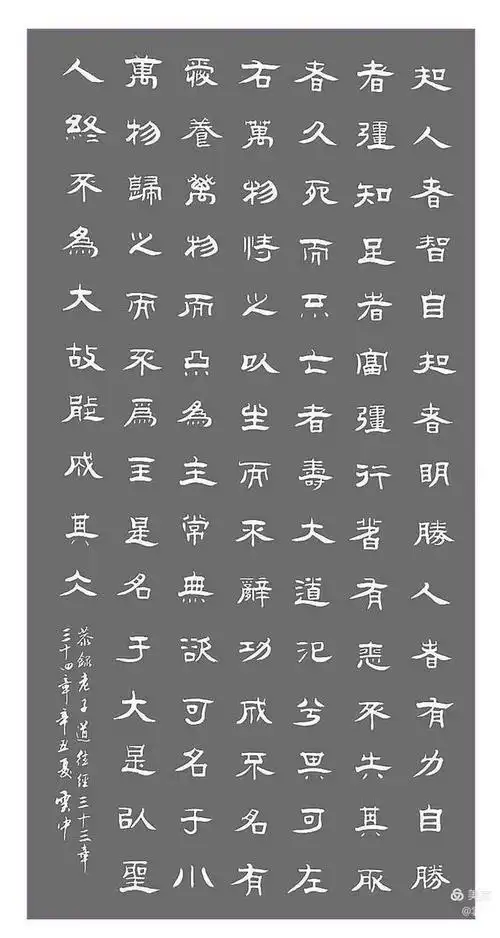 知人者智自知者明勝人者有力自勝
者彊知足者富彊行者有志不失其所
者久死而不亡者壽大道氾兮其可左
右萬物恃之以生而不辭功成不名有
愛養萬物而不為主常無欲可名于小
萬物歸之而不為主是名于大是以聖
人終不為大故能成其大
恭錄老子道德經三十三章
三十四章辛丑夏雲中
美